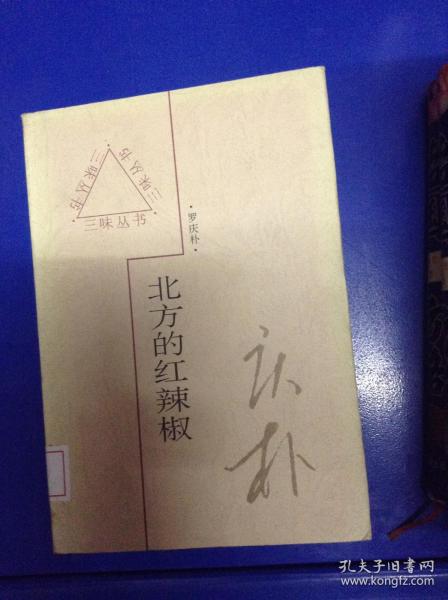 三味丛书
三味丛书
三味丛书
·罗庆朴·
北方的红辣椒
庆朴
孔夫子旧书网
www.kongfz.com